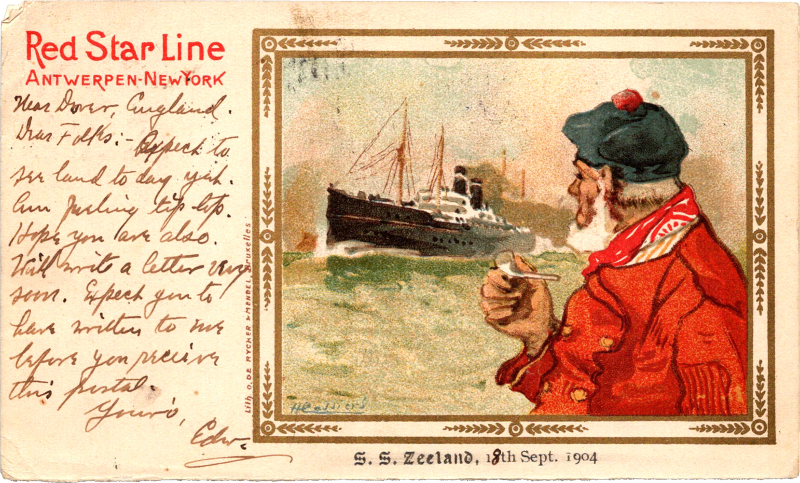 Red Star Line
ANTWERPEN-NEWYORK
Near Dover, England.
Dear Folks:- Expect to
see land to day yet.
Am feeling tip top.
Hope you are also.
Will write a letter very
soon. Expect you to
have written to me
before you receive
this postal.
Yours,
Edw.
Lith. O. DE RYCKER & MENDEL, Bruxelles
H Cassiers
S. S. Zeeland, 18th Sept. 1904